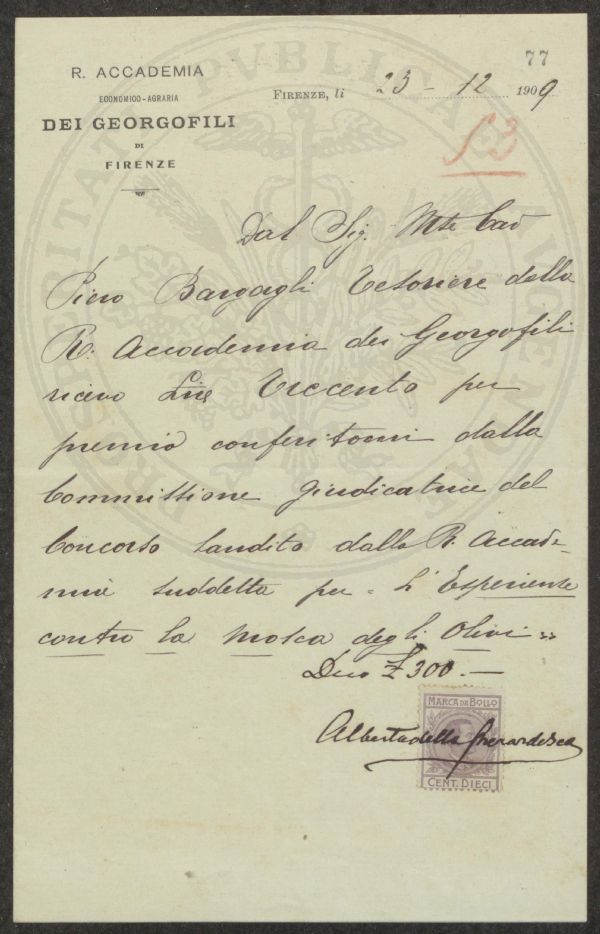 77
R. ACCADEMIA
ECONOMICO-AGRARIA
DEI GEORGOFILI
DI
FIRENZE
FIRENZE, li 23 - 12 1909
53
Dal Sig. Mse Cav
Piero Bargagli Tesoriere della
R. Accademia dei Georgofili
ricevo Lire Trecento per
premio conferitomi dalla
Commissione giudicatrice del
Concorso bandito dalla R. Accade-
mia suddetta per = L'Esperienze
contro la mosca degli Olivi =
Dico £ 300.—
MARCA DA BOLLO
Alberto della Gherardesca
CENT. DIECI
PROSPERITATI PVBLICAE AVGENDAE